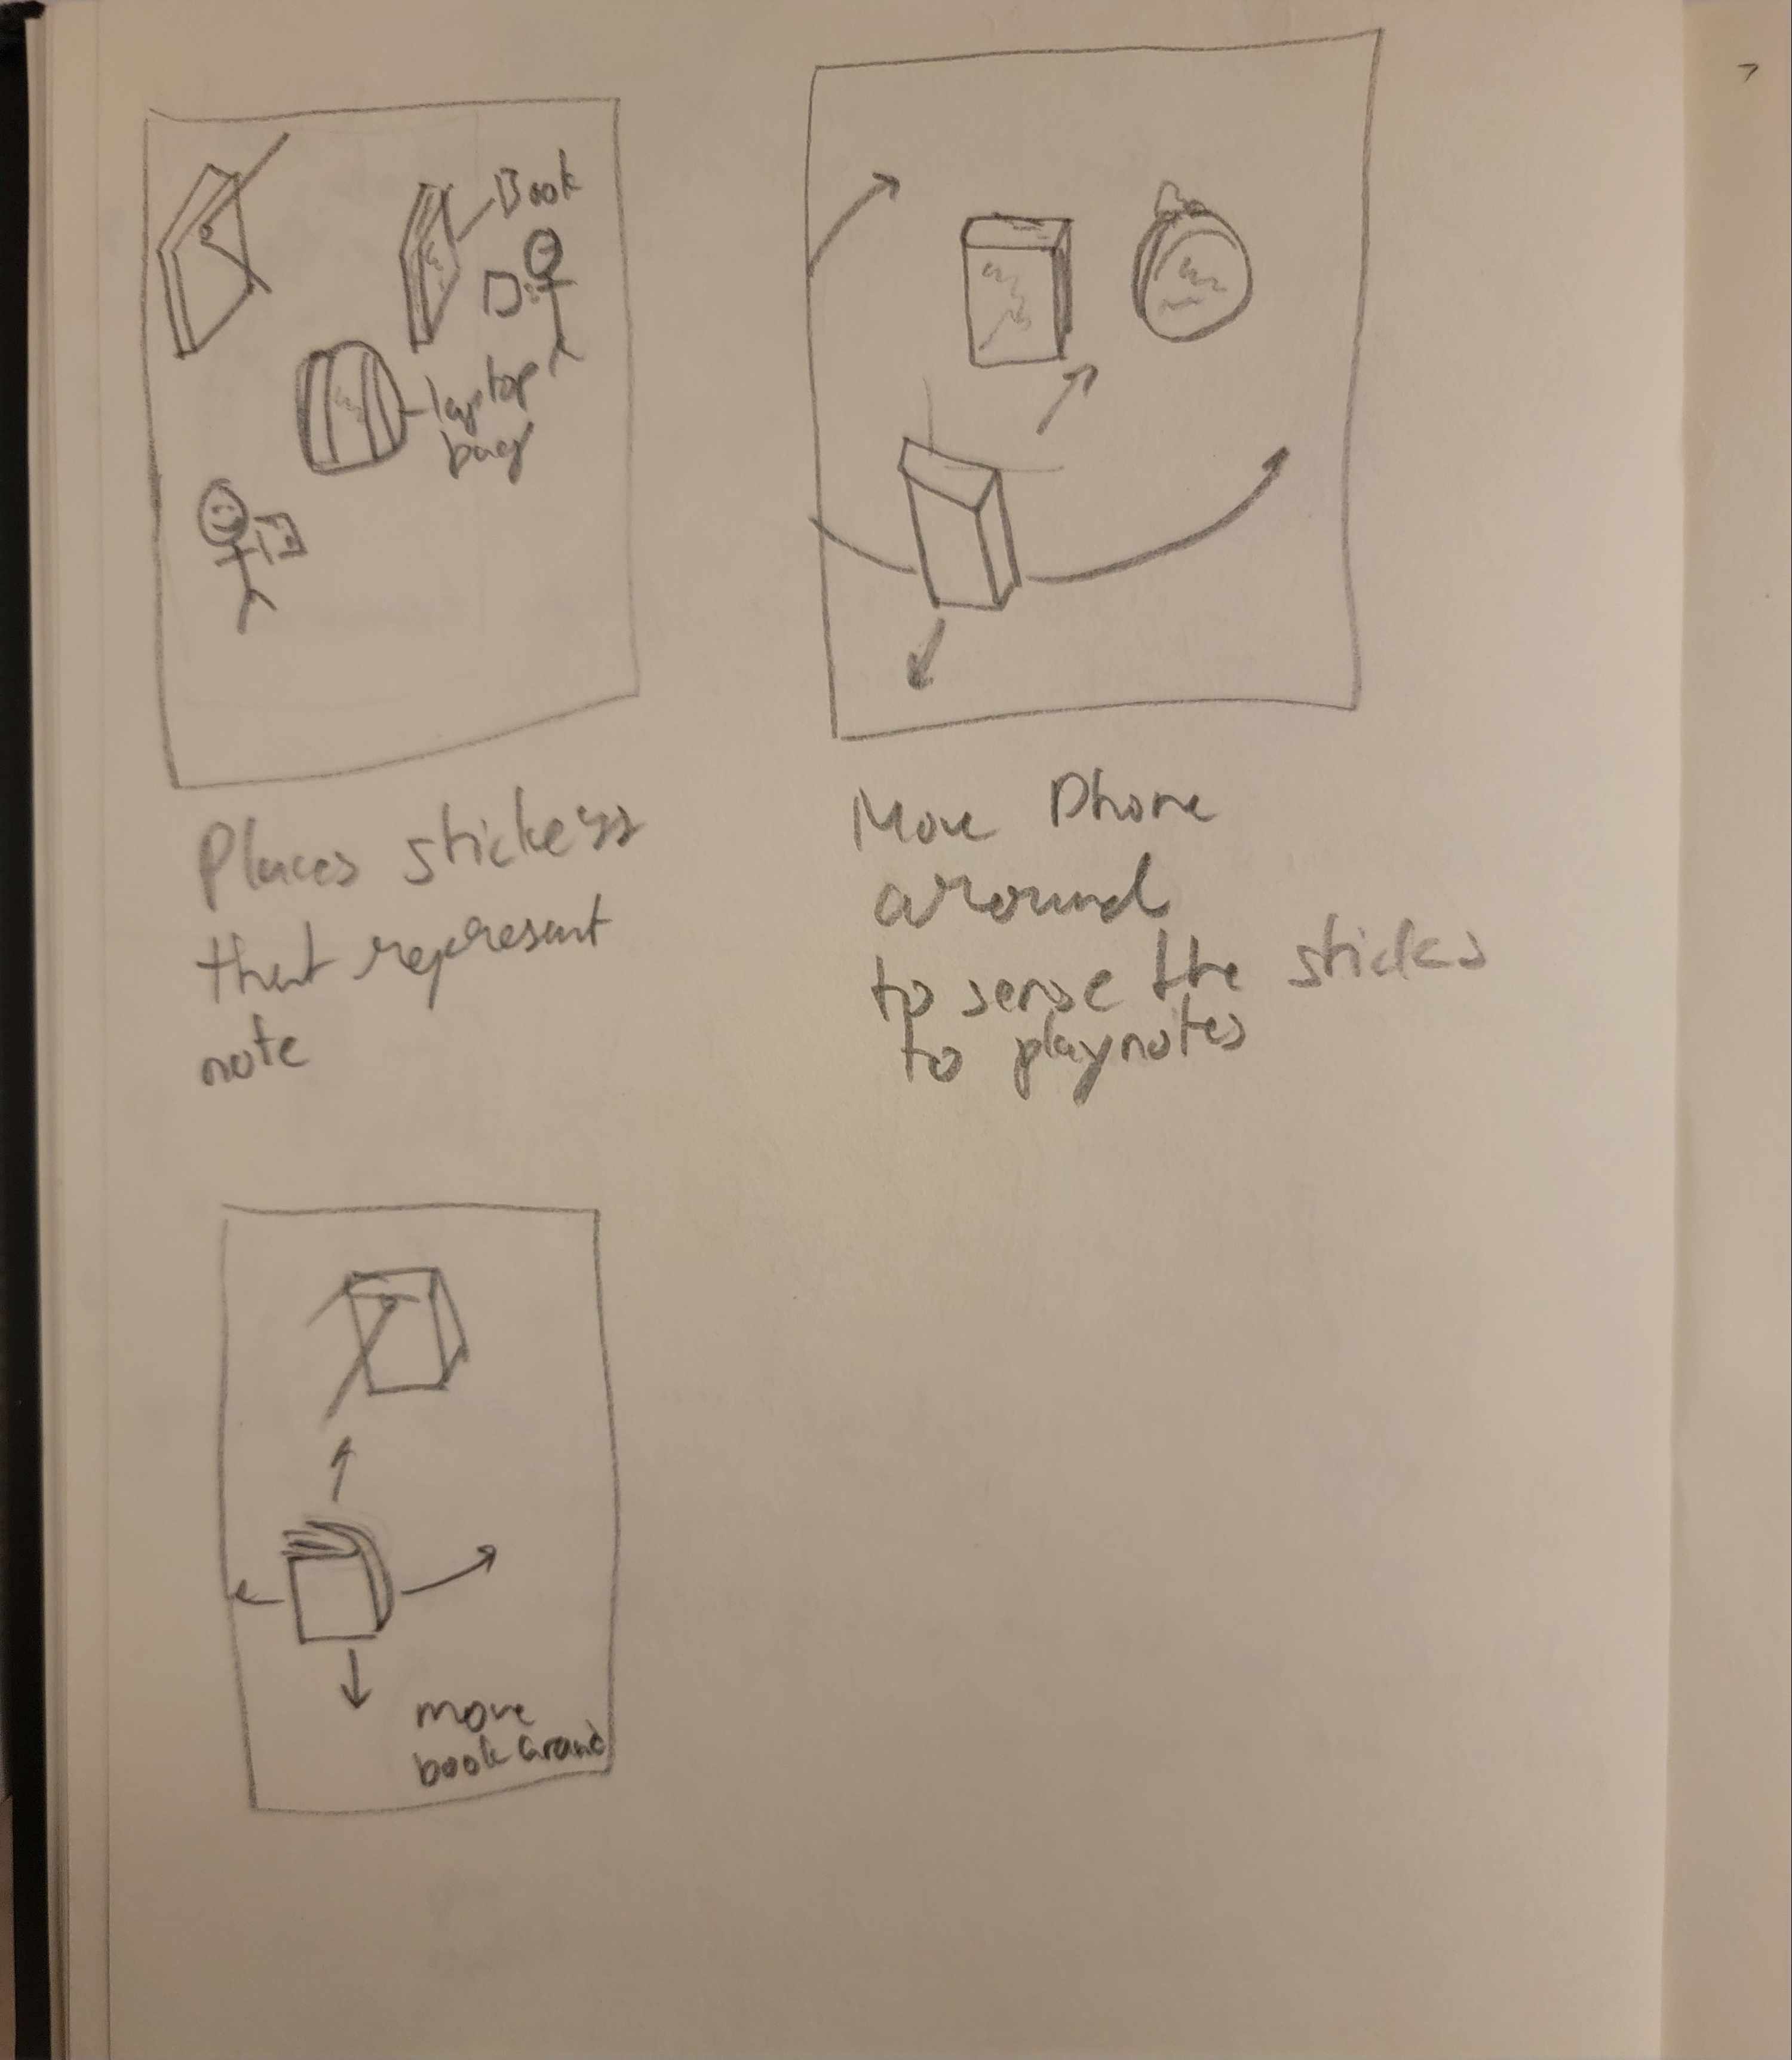 Book
laptop
bag
Places stickers
that represent
note
Move Phone
around
to sense the sticks
to playnotes
move
book around